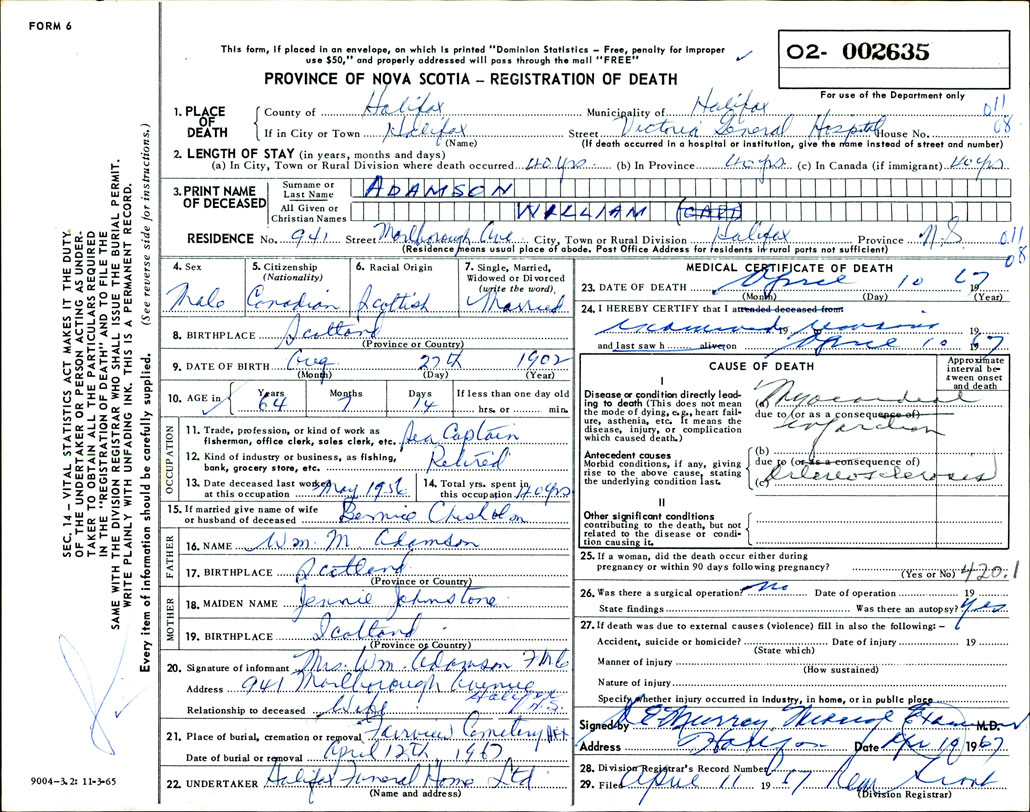 FORM 6
This form, if placed in an envelope, on which is printed "Dominion Statistics – Free, penalty for improper
use $50," and properly addressed will pass through the mail "FREE"
PROVINCE OF NOVA SCOTIA – REGISTRATION OF DEATH
O2- 002635
For use of the Department only
1. PLACE OF DEATH
County of Halifax Municipality of Halifax 011
If in City or Town Halifax Street Victoria General Hospital House No. 08
(Name) (If death occurred in a hospital or institution, give the name instead of street and number)
2. LENGTH OF STAY (in years, months and days)
(a) In City, Town or Rural Division where death occurred 40 yrs (b) in Province 40 yrs (c) in Canada (if immigrant) 40 yrs
3. PRINT NAME OF DECEASED
Surname or Last Name ADAMSON
All Given or Christian Names WILLIAM (CAPT)
RESIDENCE No. 941 Street Marlborough Ave City, Town or Rural Division Halifax Province N.S. 011
(Residence means usual place of abode. Post Office Address for residents in rural parts not sufficient) 08
4. Sex Male
5. Citizenship (Nationality) Canadian
6. Racial Origin Scottish
7. Single, Married, Widowed or Divorced (write the word) Married
8. BIRTHPLACE Scotland
(Province or Country)
9. DATE OF BIRTH Aug 27th 1902
(Month) (Day) (Year)
10. AGE in Years 64 Months 7 Days 14 If less than one day old hrs. or min.
OCCUPATION
11. Trade, profession, or kind of work as fisherman, office clerk, sales clerk, etc. Sea Captain
12. Kind of industry or business, as fishing, bank, grocery store, etc. Retired
13. Date deceased last worked at this occupation May 1956
14. Total yrs. spent in this occupation 40 yrs
15. If married give name of wife or husband of deceased Bernice Chisholm
FATHER
16. NAME Wm. M Adamson
17. BIRTHPLACE Scotland
(Province or Country)
MOTHER
18. MAIDEN NAME Jennie Johnstone
19. BIRTHPLACE Scotland
(Province or Country)
20. Signature of informant Mrs. Wm. Adamson
Address 941 Marlborough Avenue Halifax N.S.
Relationship to deceased Wife
21. Place of burial, cremation or removal Fairview Cemetery Hfx
Date of burial or removal April 12th 1967
22. UNDERTAKER Halifax Funeral Home Ltd
(Name and address)
MEDICAL CERTIFICATE OF DEATH
23. DATE OF DEATH April 10 1967
(Month) (Day) (Year)
24. I HEREBY CERTIFY that I attended deceased from
examined remains 19 19
and last saw h alive on April 10 1967
CAUSE OF DEATH
Approximate interval between onset and death
I
Disease or condition directly leading to death (This does not mean the mode of dying, e.g., heart failure, asthenia, etc. It means the disease, injury, or complication which caused death.)
(a) Myocardial
due to (or as a consequence of)
infarction
Antecedent causes
Morbid conditions, if any, giving rise to the above cause, stating the underlying condition last.
(b)
due to (or as a consequence of)
(c) Arteriosclerosis
II
Other significant conditions
contributing to the death, but not related to the disease or condition causing it.
25. If a woman, did the death occur either during
pregnancy or within 90 days following pregnancy?
(Yes or No) 420.1
26. Was there a surgical operation? No Date of operation 19
State findings Was there an autopsy? Yes
27. If death was due to external causes (violence) fill in also the following: –
Accident, suicide or homicide? Date of injury 19
(State which)
Manner of injury
(How sustained)
Nature of injury
Specify whether injury occurred in industry, in home, or in public place
Signed by Murray Medical Examiner M.D.
Address Halifax Date Apr 19 1967
28. Division Registrar's Record Number
29. Filed April 11 1967
(Division Registrar)
SEC. 14 – VITAL STATISTICS ACT MAKES IT THE DUTY
OF THE UNDERTAKER OR PERSON ACTING AS UNDER-
TAKER TO OBTAIN ALL THE PARTICULARS REQUIRED
IN THE "REGISTRATION OF DEATH" AND TO FILE THE
SAME WITH THE DIVISION REGISTRAR WHO SHALL ISSUE THE BURIAL PERMIT.
WRITE PLAINLY WITH UNFADING INK. THIS IS A PERMANENT RECORD.
Every item of information should be carefully supplied. (See reverse side for instructions.)
9004–3.2: 11-3-65